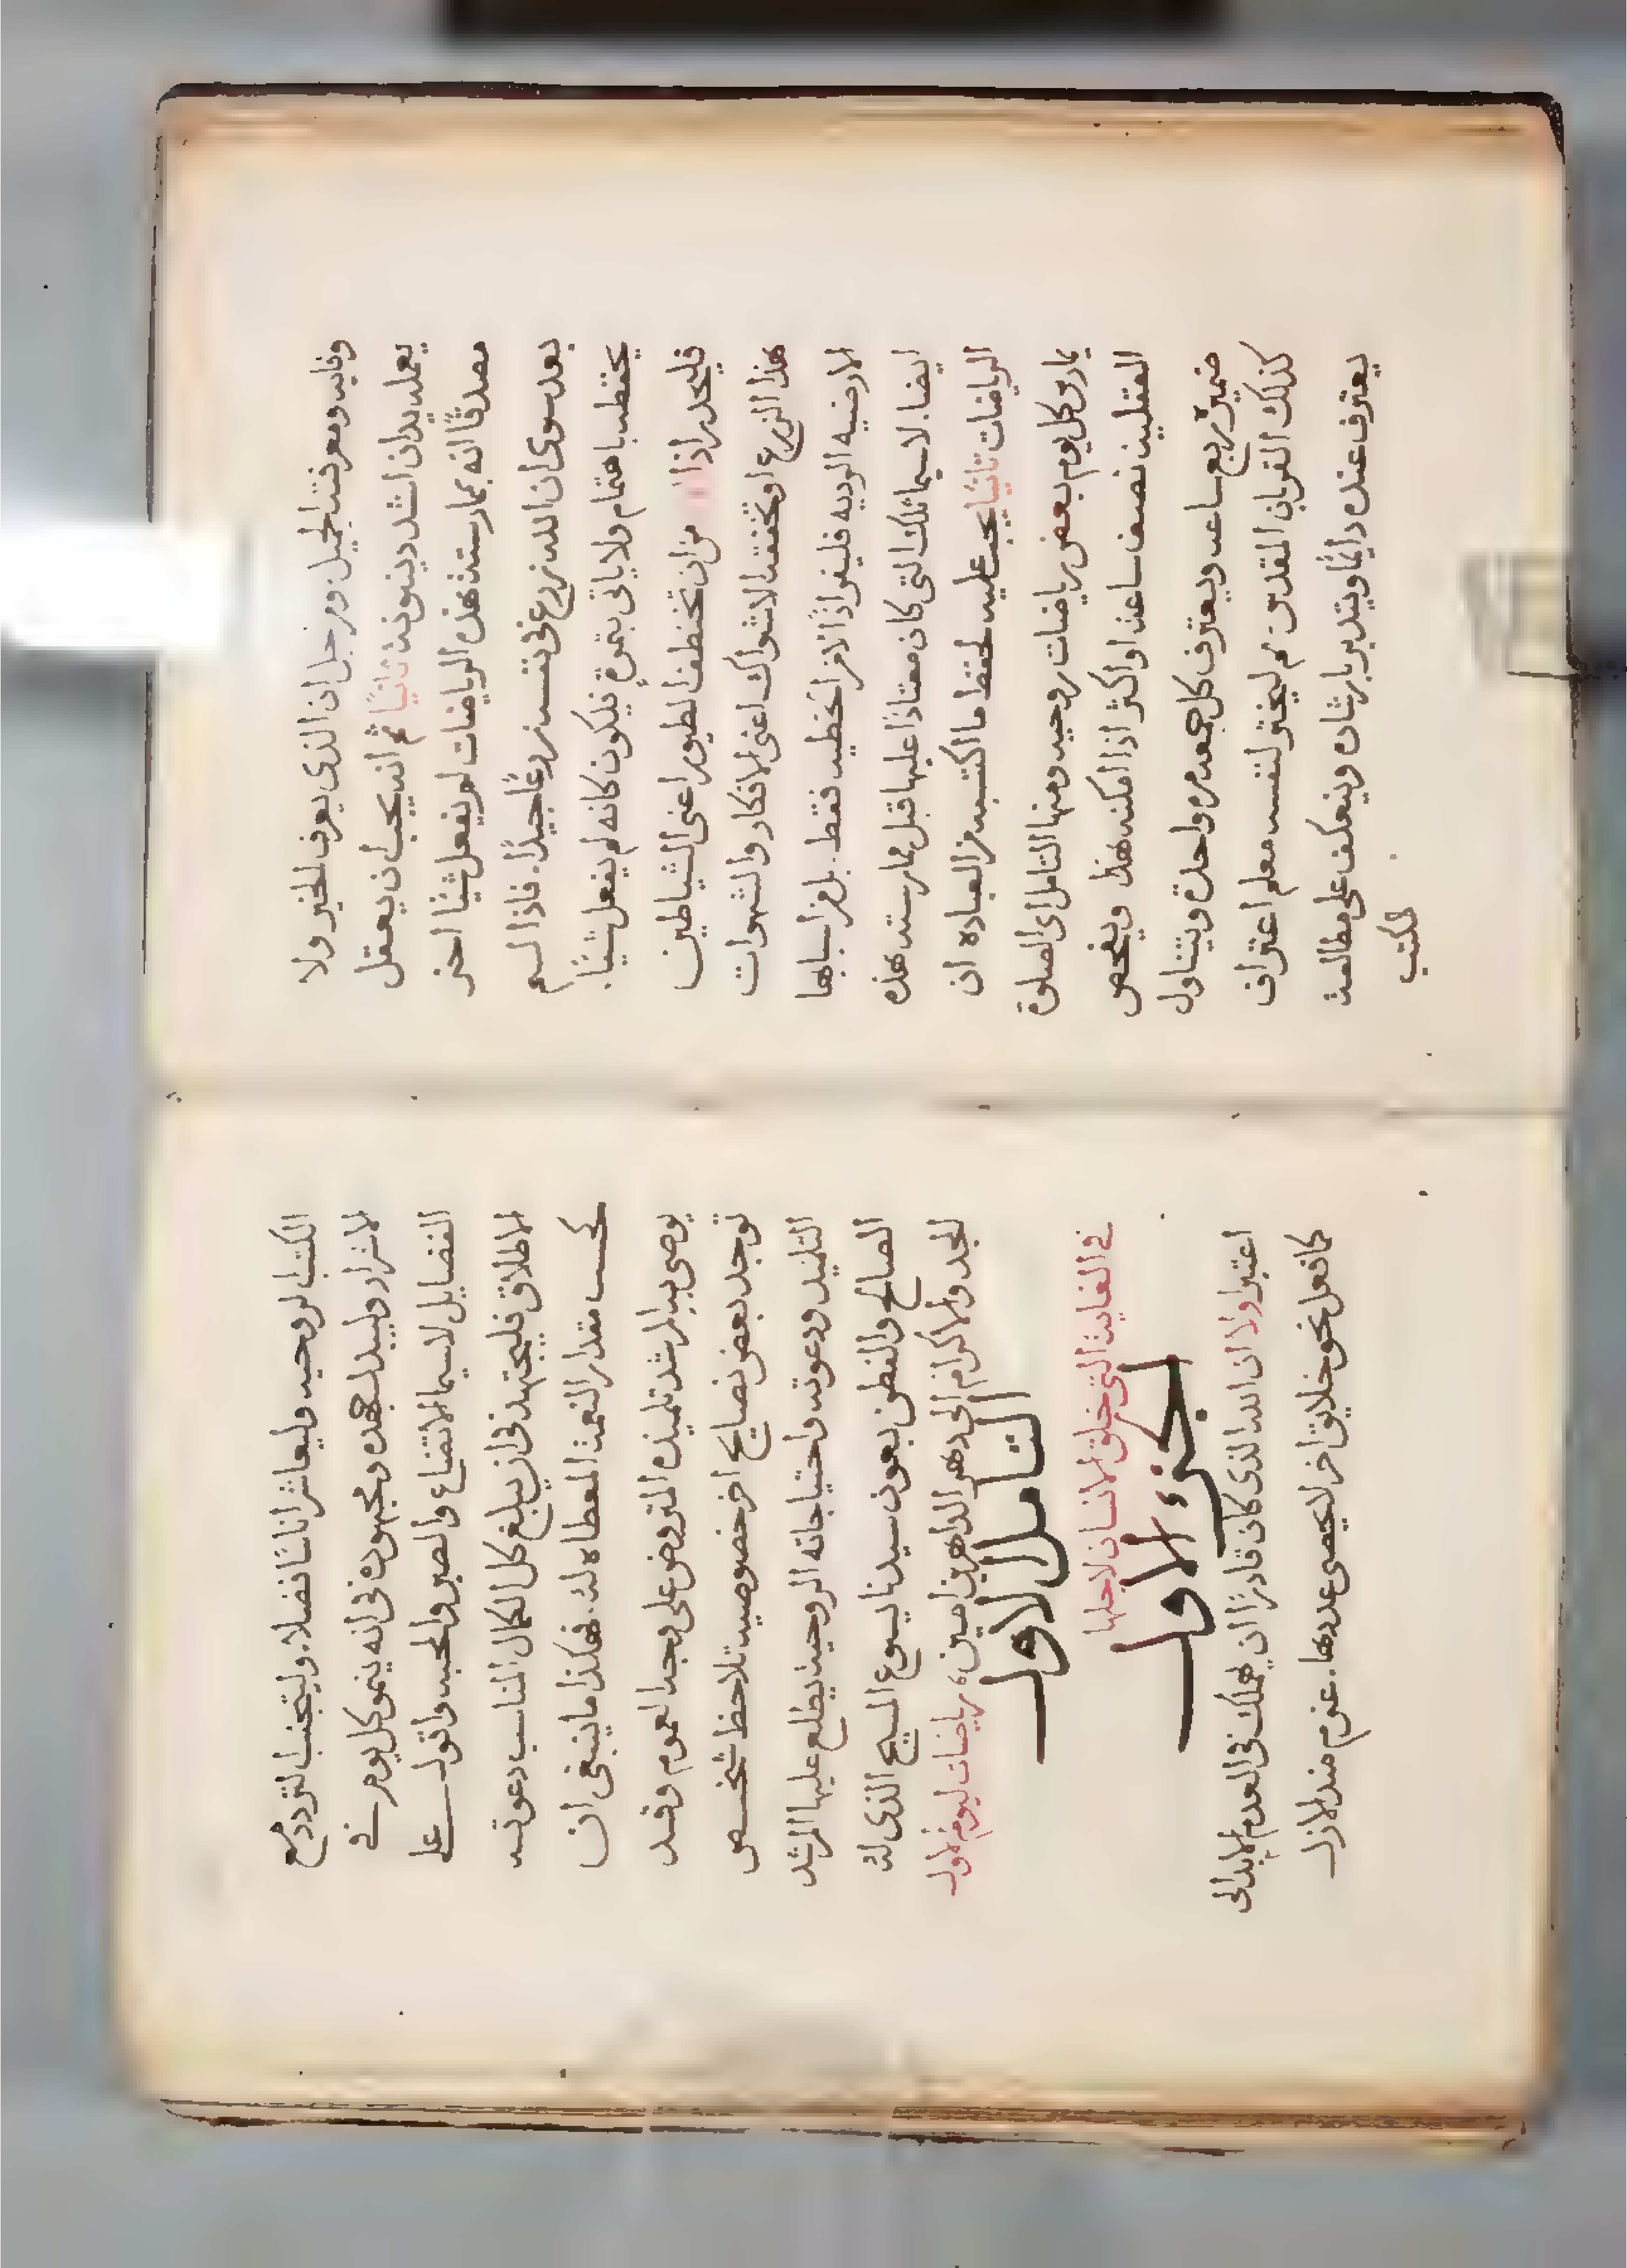 وفايه ومعرفته الجميل ومن جل ان الذي يعرف الخير ولا
يعمله يدان اشد دينونه ثانيًا ثم انه يجب ان يعقل
مصدقًا انه بممارسته هذه الرياضات لم يفعل شيًا اخر
بعد سوى ان الله زرع في نفسه زرعًا جيدًا. فاذا لم
يحفظه باهتمام ولا ياتي بثمرةٍ فيكون كانه لم يفعل شيًا.
فليحذر اذًا من ان تخطفه الطيور اعني الشياطين
هذا الزرع او تخنقه الاشواك اعني الافكار والشهوات
الارضيه الرديه فليفر اذًا لا من الخطيه فقط. بل من اسبابها
ايضا. لاسيما تلك التي كان معتادًا عليها قبل ممارسته هذه
الرياضات ثانيًا يجب عليه لحفظ ما اكتسبه من العباده ان
يمارس كل يوم بعض رياضات روحيه ومنها التامل اي الصلوة
العقليه نصف ساعه او اكثر اذا امكنه هذا ويفحص
ضميره ربع ساعه ويعترف كل جمعه مره واحدة ويتناول
كذلك القربان المقدس ثم ليختر لنفسه معلم اعتراف
يعترف عنده دايمًا ويتدبر بارشاده وينعكف على مطالعة
الكتب
الكتب الروحيه وليعاشر اناسًا فضلاء وليتجنب التردد مع
الاشرار وليبدل جهده ومجهوده في انه ينمو كل يوم في
الفضايل لاسيما الاتضاع والصبر والمحبه واقول على
الاطلاق فليجتهد في ان يبلغ كل الكمال المناسب دعوته
بحسب مقدار النعمة المعطاه له. فهكذا ما ينبغي ان
يوصي به المرشد تلميذه المتروض على وجه العموم وقد
توجد بعض نصايح اخر خصوصيه تلاحظ شخص
التلميذ ودعوته واحتياجاته الروحيه يطلع عليها المرشد
الصالح والفطن بعون سيدنا يسوع المسيح الذي له
المجد والاكرام الى دهر الداهرين امين، رياضات ليوم الاول
التامل الاول
في الغاية التي خلق الانسان لاجلها
الجزء الاول
اعتبر اولا ان الله الذي كان قادرًا ان يهملك في العدم الابدي
كما فعل نحو خلايق اخر لا يحصى عددها. عزم منذ الازل